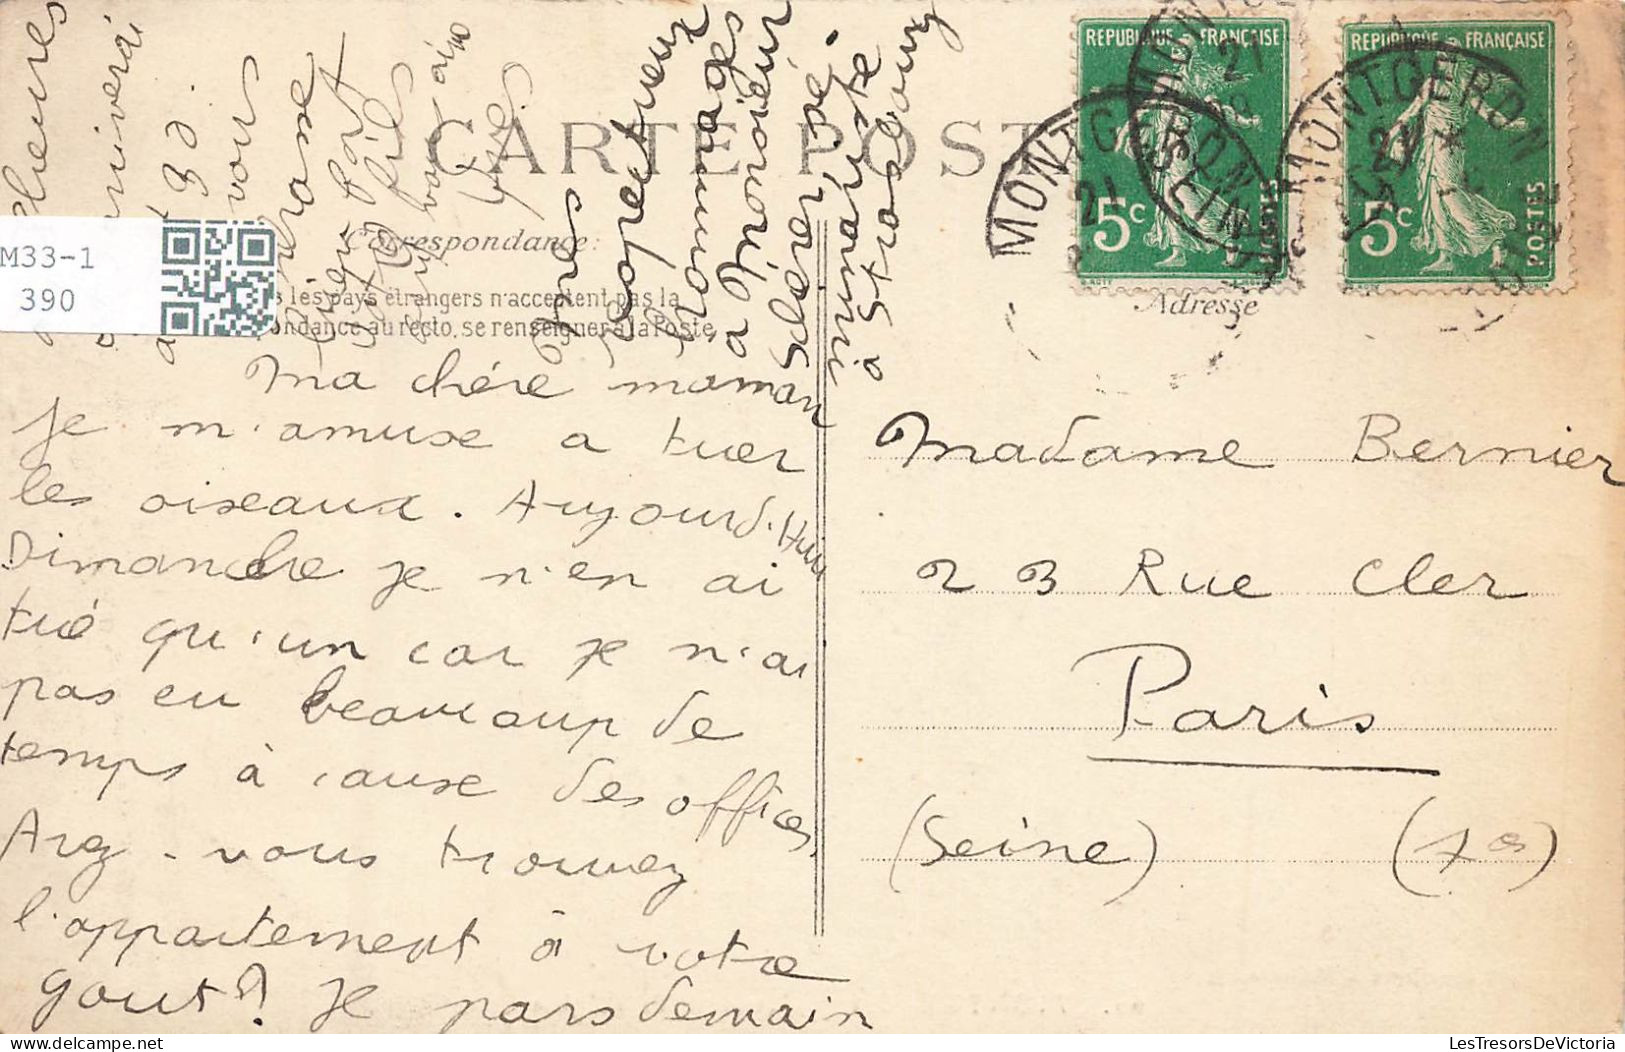 CARTE POST
Correspondance:
les pays étrangers n'acceptent pas la
ondance au recto, se renseigner à la Poste.
Adresse
M33-1
390
REPUBLIQUE FRANÇAISE
5c
POSTES
REPUBLIQUE FRANÇAISE
5c
POSTES
MONTGERON
21
MONTGERON
21
Ma chére maman
Je m'amuse a tuer
les oiseaux. Aujourd'Hui
Dimanche je n'en ai
tué qu'un car je n'ai
pas eu beaucoup de
temps à cause des offices.
Avez-vous trouvez
l'appartement à votre
gout? Je pars demain
heures
arriverai
30
vous
embrasse
bien fort
fils
qui vous aime
José
Mes
respectueux
hommages
a Monsieur
Sélérier
a Strasbourg
Madame Bernier
23 Rue Cler
Paris
(Seine) (7es)
LesTresorsDeVictoria